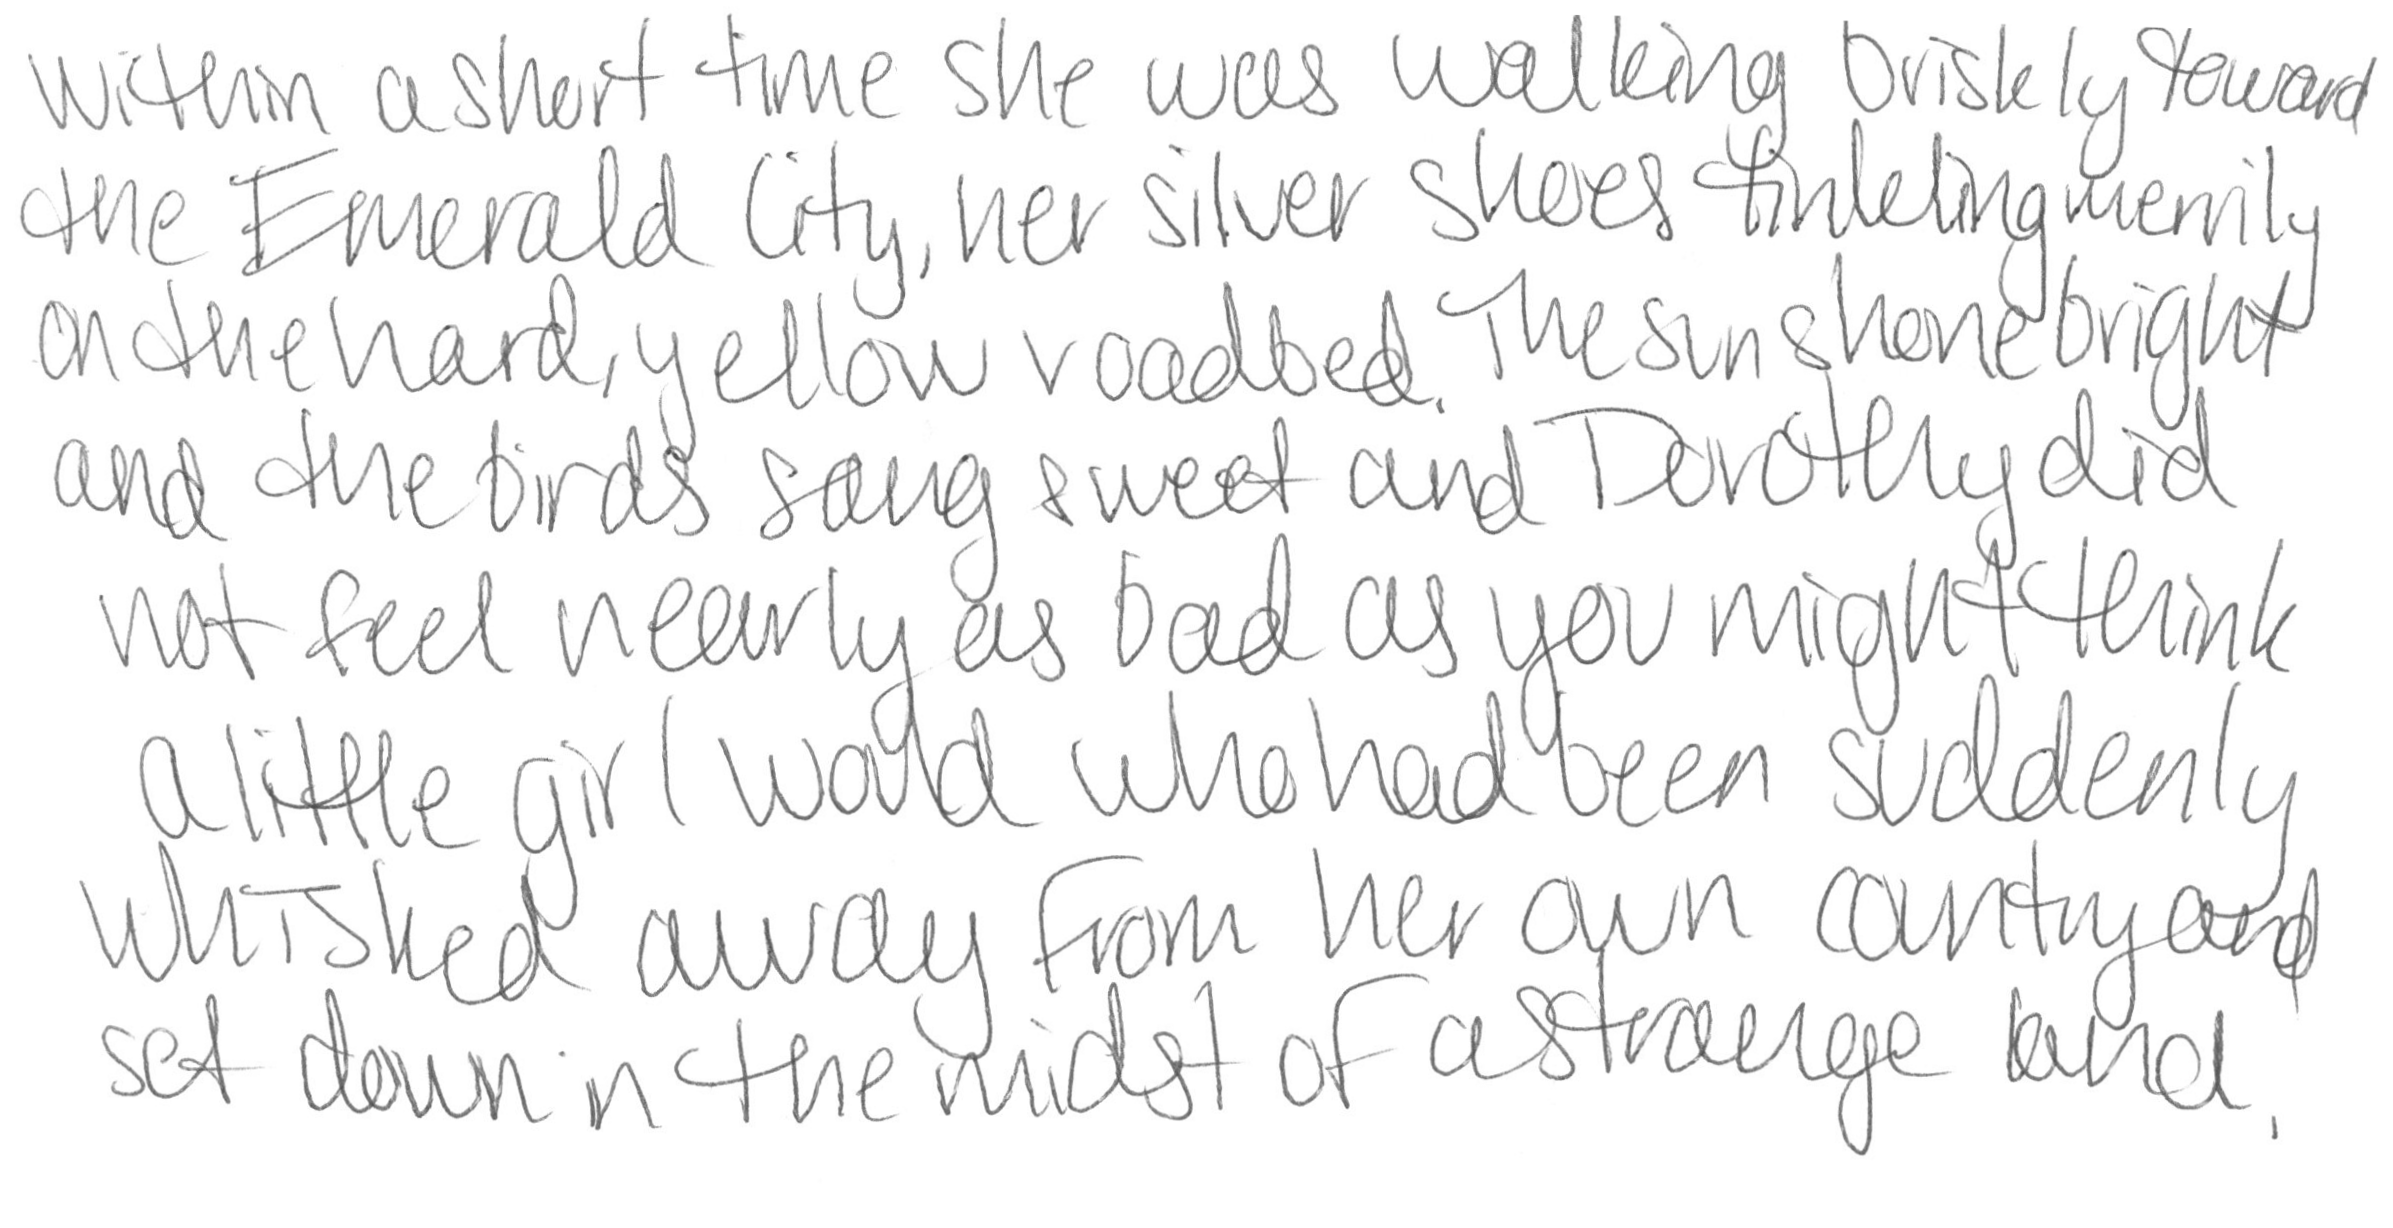 Within a short time she was walking briskly toward
the Emerald City, her silver shoes tinkling merrily
on the hard, yellow roadbed. The sun shone bright
and the birds sang sweet and Dorothy did
not feel nearly as bad as you might think
a little girl would who had been suddenly
whisked away from her own country and
set down in the midst of a strange land.